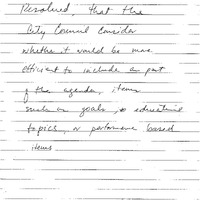 Resolved, that the
City Council consider
whether it would be more
efficient to include as part
of the agenda, items
such as goals, educational
topics, or performance based
items